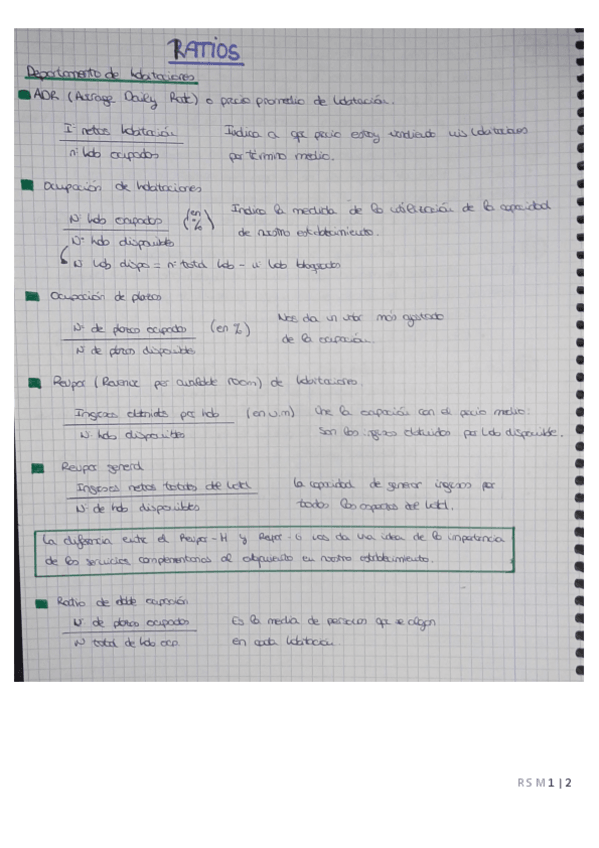 RATIOS
Departamento de habitaciones
ADR (Average Daily Rate) o precio promedio de habitación.
I. netos habitación Indica a que precio estoy vendiendo mis habitaciones
nº hab ocupadas por término medio.
Ocupación de habitaciones
Nº hab ocupadas (en %) Indica la medida de la utilización de la capacidad
Nº hab disponibles de nuestro establecimiento.
Nº hab dispo = nº total hab - nº hab bloqueadas
Ocupación de plazas
Nº de plazas ocupadas (en %) Nos da un valor más ajustado
Nº de plazas disponibles de la ocupación.
Revpar (Revenue per available room) de habitaciones.
Ingresos obtenidos por hab (en u.m) la ocupación con el precio medio.
Nº hab disponibles Son los ingresos obtenidos por hab disponible.
Revpar general
Ingresos netos totales del hotel la capacidad de generar ingresos por
Nº de hab disponibles todos los espacios del hotel.
La diferencia entre el Revpar-H y Revpar-G nos da una idea de la importancia
de los servicios complementarios al alojamiento en nuestro establecimiento.
Ratio de doble ocupación
Nº de plazas ocupadas Es la media de personas que se alojan
Nº total de hab ocu. en cada habitación.
RSM1|2